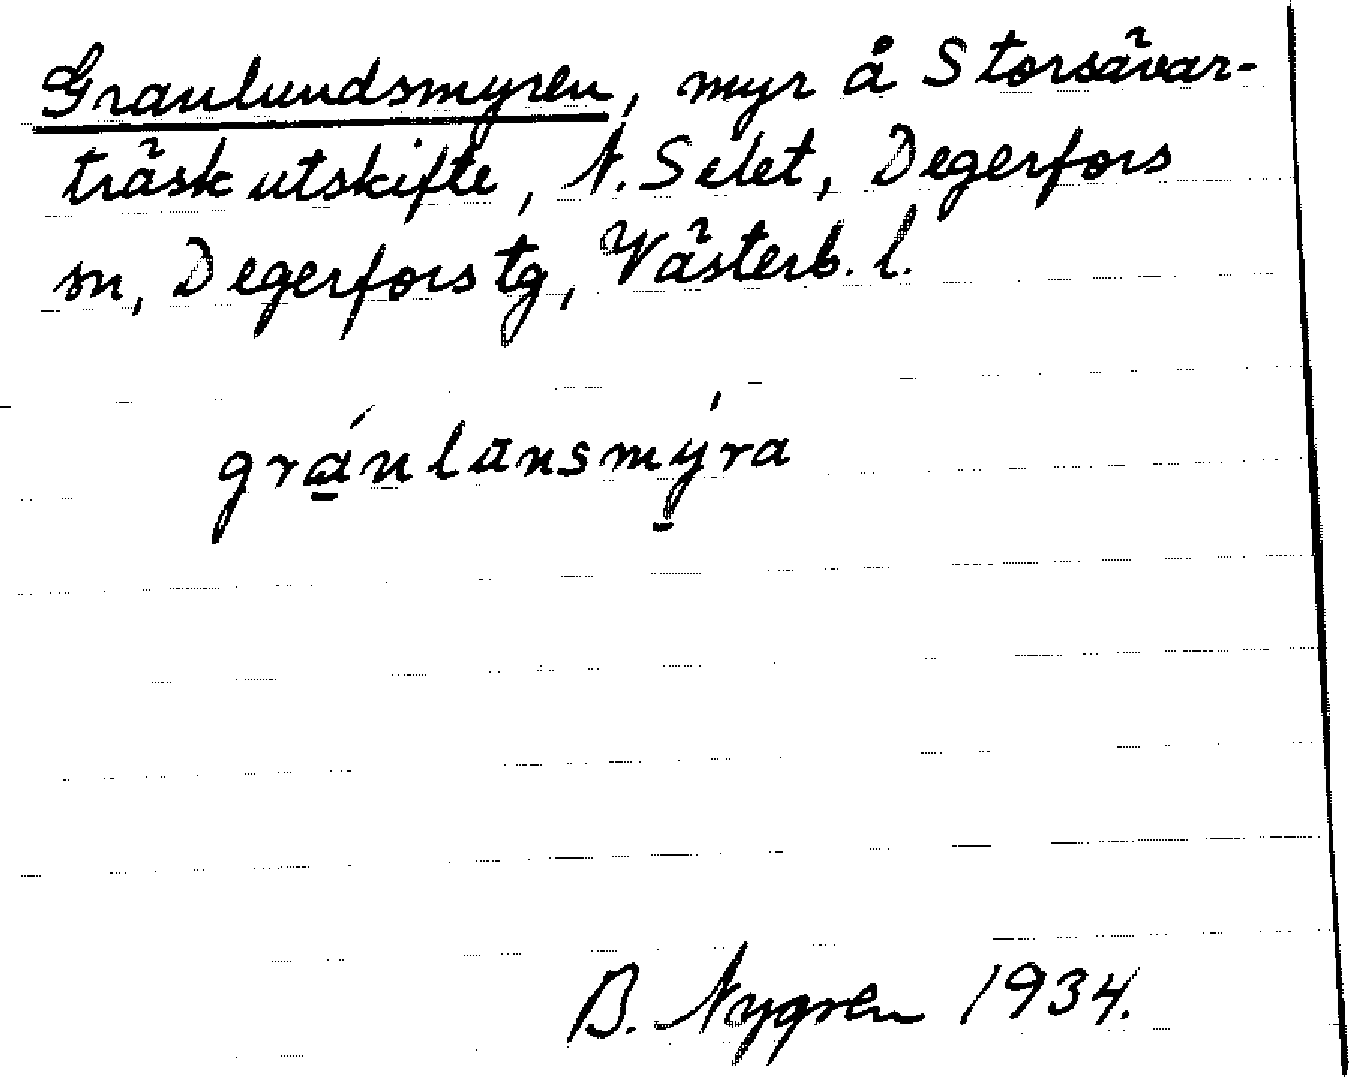 Granlundsmyren, myr å Storsävar-
träsk utskifte, N. Selet, Degerfors
sn, Degerfors tg, Västerb. l.
gránlansmýra
B. Nygren 1934.